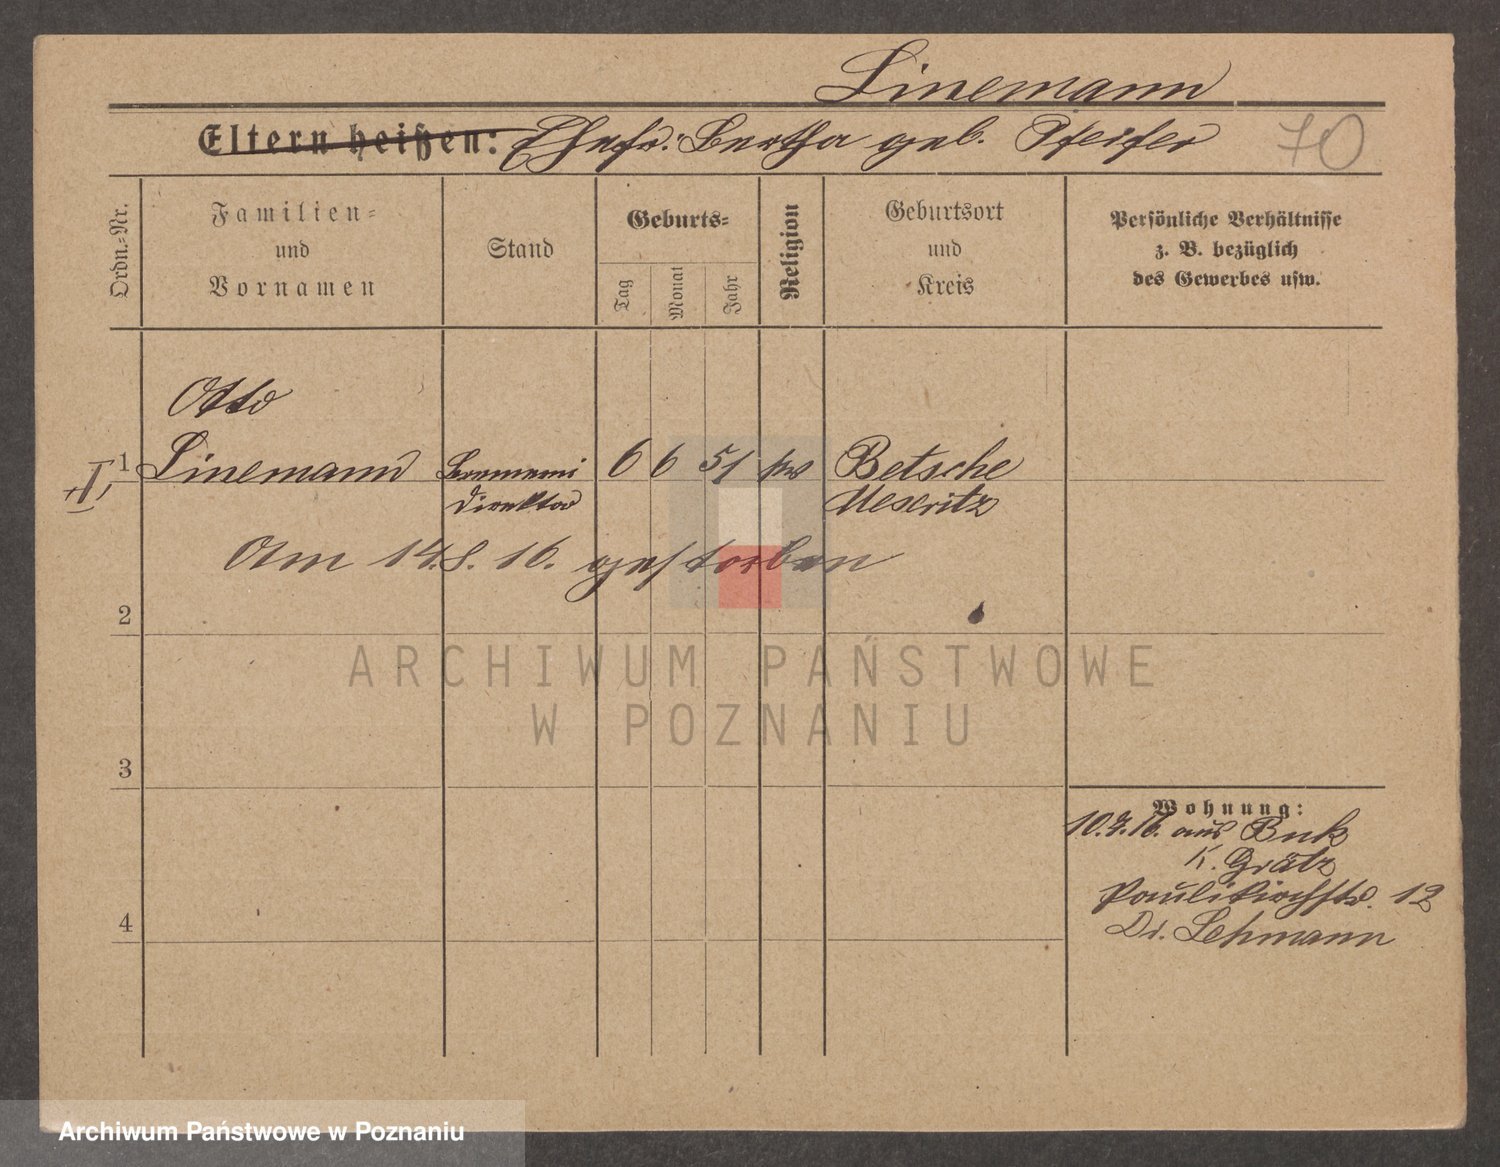 Linemann
Eltern heißen: Ehefr.: Bertha geb. Pfeifer 70
Ordn.-Nr.
Familien-
und
Vornamen
Stand
Geburts-
Tag
Monat
Jahr
Religion
Geburtsort
und
Kreis
Persönliche Verhältnisse
z. B. bezüglich
des Gewerbes usw.
Otto
1 Linemann 6 6 51 Betsche
Direktor Meseritz
Am 14.8.16. gestorben
2
ARCHIWUM PAŃSTWOWE
W POZNANIU
3
Wohnung:
10.7.16. aus Buk
K. Grätz
Paulikirchstr. 12
4
Dr. Lehmann
Archiwum Państwowe w Poznaniu